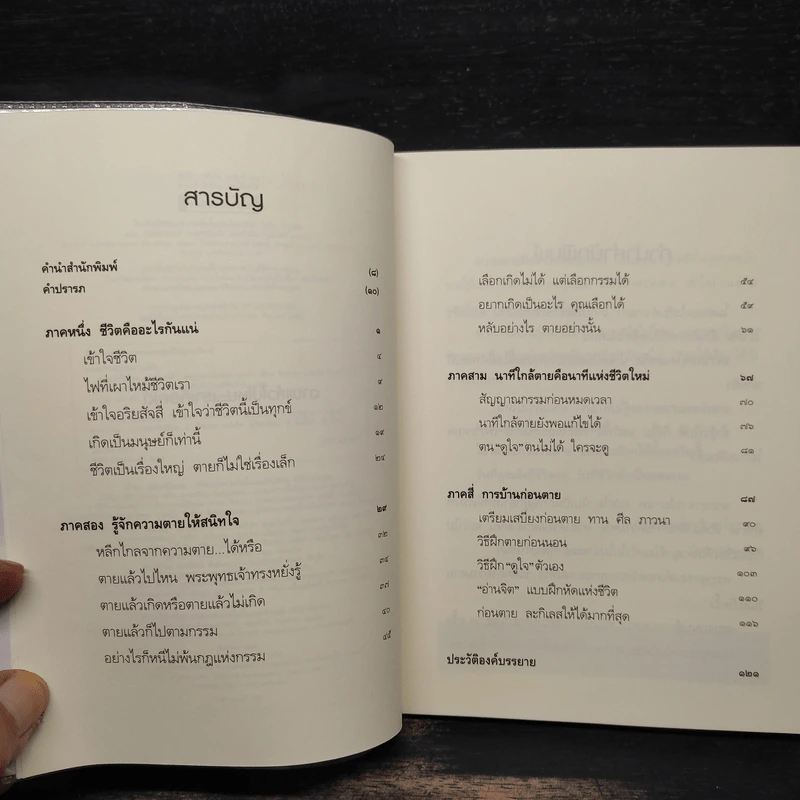 สารบัญ
คำนำสำนักพิมพ์ (๘)
คำปรารภ (๑๐)
ภาคหนึ่ง ชีวิตคืออะไรกันแน่ ๑
เข้าใจชีวิต ๔
ไฟที่เผาไหม้ชีวิตเรา ๙
เข้าใจอริยสัจสี่ เข้าใจว่าชีวิตนี้เป็นทุกข์ ๑๒
เกิดเป็นมนุษย์ก็เท่านี้ ๑๙
ชีวิตเป็นเรื่องใหญ่ ตายก็ไม่ใช่เรื่องเล็ก ๒๔
ภาคสอง รู้จักความตายให้สนิทใจ ๒๙
หลีกไกลจากความตาย...ได้หรือ ๓๒
ตายแล้วไปไหน พระพุทธเจ้าทรงหยั่งรู้ ๓๔
ตายแล้วเกิดหรือตายแล้วไม่เกิด ๓๗
ตายแล้วก็ไปตามกรรม ๔๐
อย่างไรก็หนีไม่พ้นกฎแห่งกรรม ๔๕
เลือกเกิดไม่ได้ แต่เลือกกรรมได้ ๕๔
อยากเกิดเป็นอะไร คุณเลือกได้ ๕๙
หลับอย่างไร ตายอย่างนั้น ๖๑
ภาคสาม นาทีใกล้ตายคือนาทีแห่งชีวิตใหม่ ๖๗
สัญญาณกรรมก่อนหมดเวลา ๗๐
นาทีใกล้ตายยังพอแก้ไขได้ ๗๖
ตน “ดูใจ” ตนไม่ได้ ใครจะดู ๘๑
ภาคสี่ การบ้านก่อนตาย ๘๗
เตรียมเสบียงก่อนตาย ทาน ศีล ภาวนา ๙๐
วิธีฝึกตายก่อนนอน ๙๖
วิธีฝึก “ดูใจ” ตัวเอง ๑๐๓
“อ่านจิต” แบบฝึกหัดแห่งชีวิต ๑๑๐
ก่อนตาย ละกิเลสให้ได้มากที่สุด ๑๑๖
ประวัติองค์บรรยาย ๑๒๑